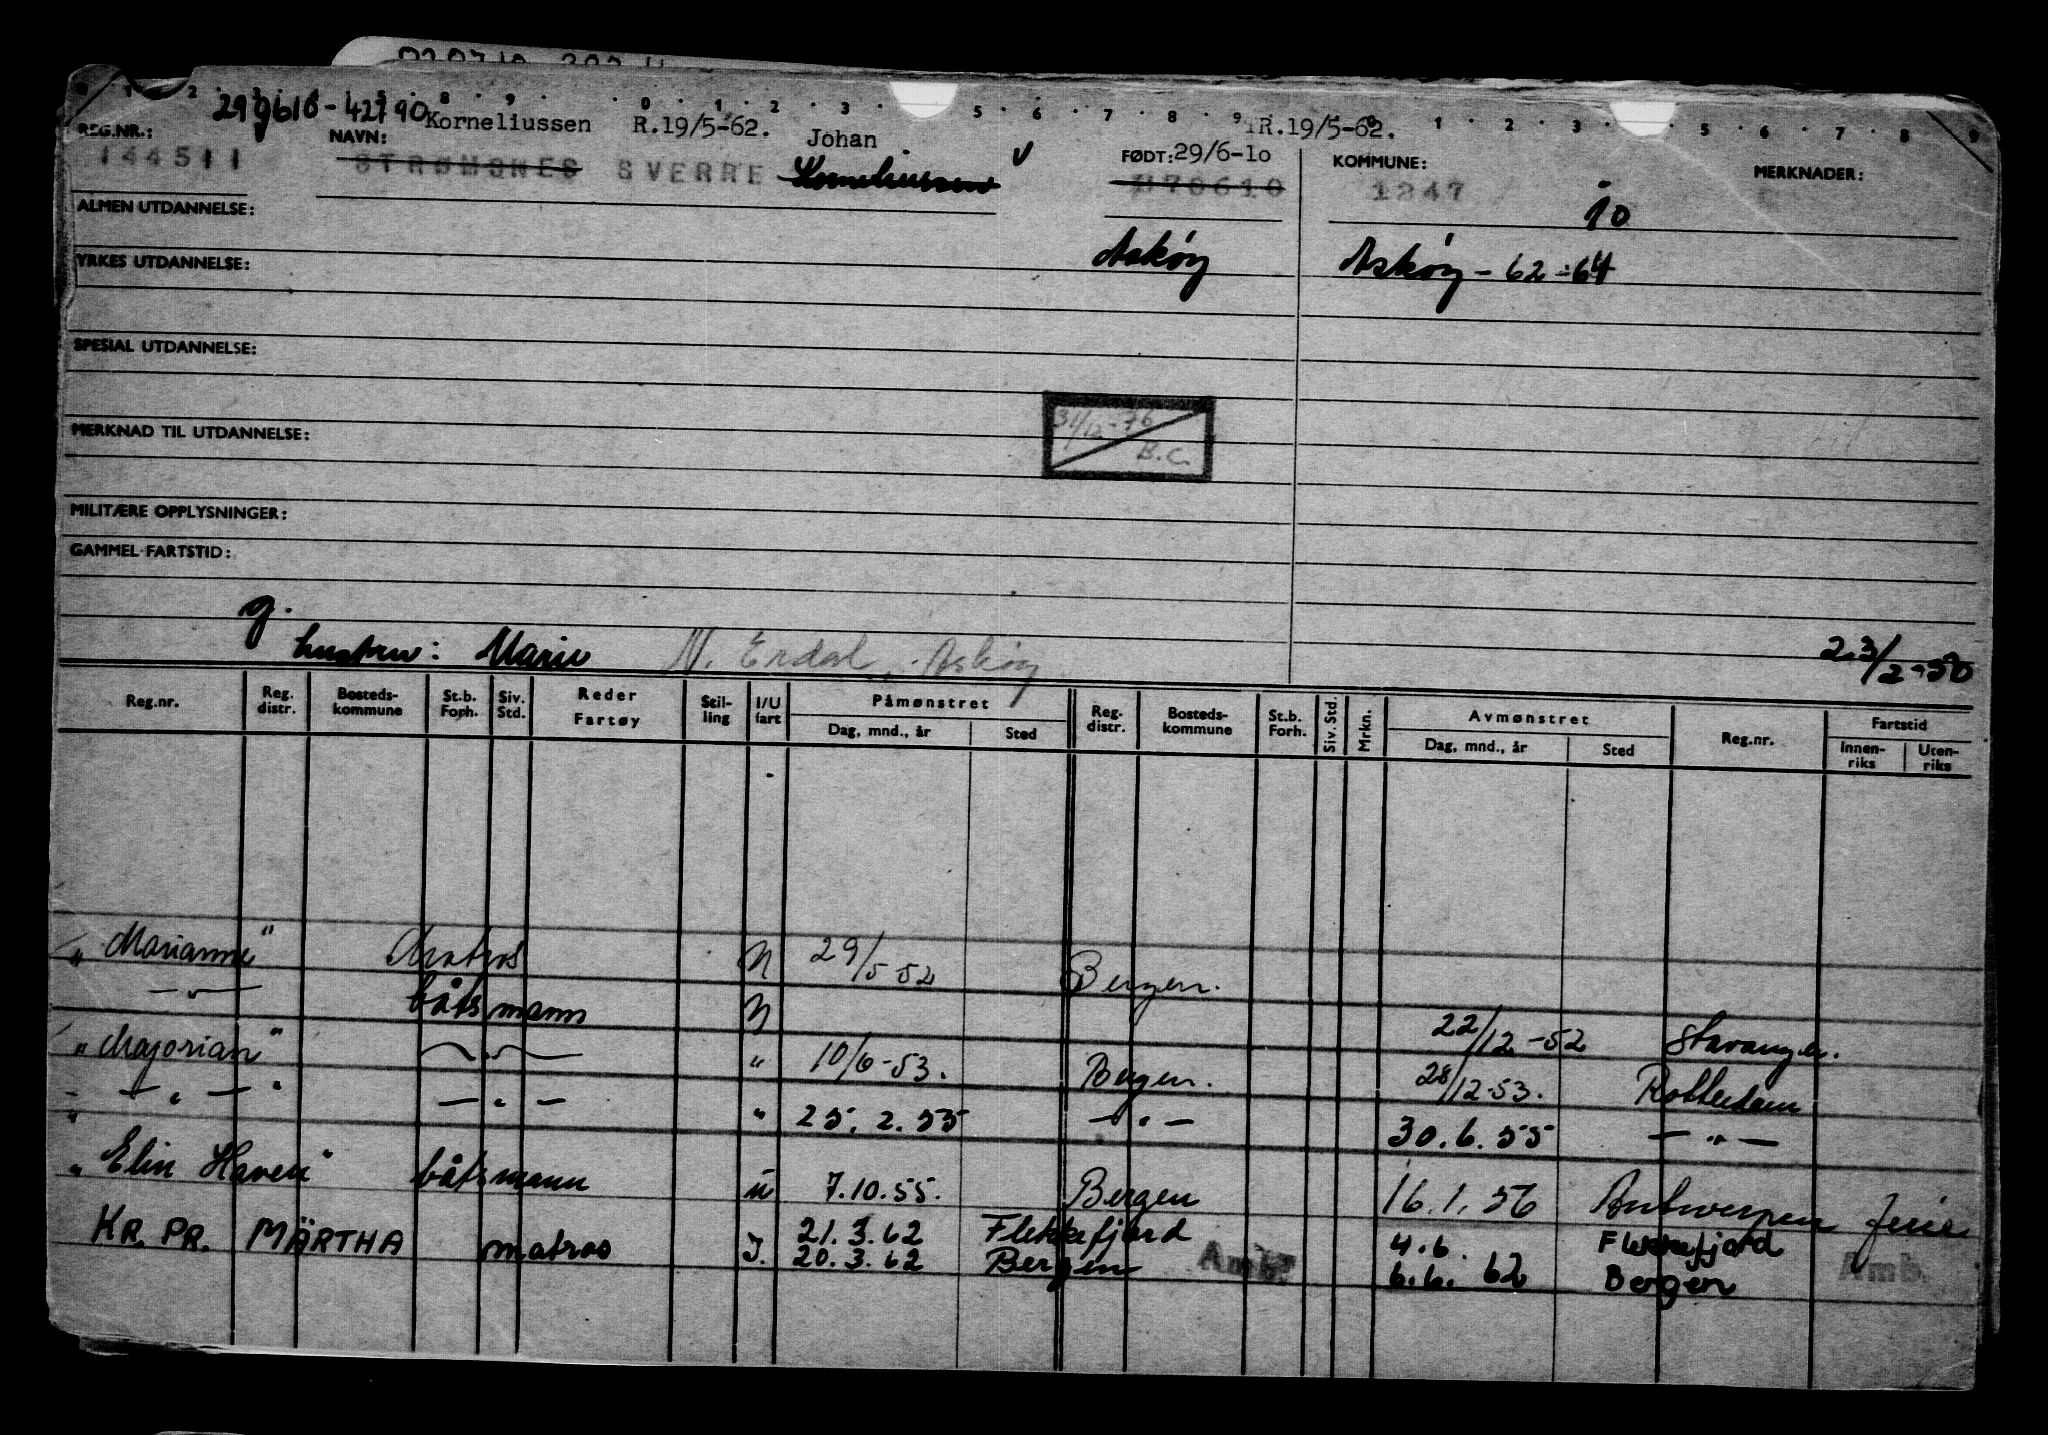 290610-42790
REG.NR.: NAVN: Korneliussen R.19/5-62. Johan v FØDT: 29/6-10 R.19/5-62. KOMMUNE: MERKNADER:
144511 STRØMSNES SVERRE Korneliussen 070610 1247 10
ALMEN UTDANNELSE:
Askøy Askøy - 62 - 64
YRKES UTDANNELSE:
SPESIAL UTDANNELSE:
31/12-76
B.C.
MERKNAD TIL UTDANNELSE:
MILITÆRE OPPLYSNINGER:
GAMMEL FARTSTID:
g.
hustru: Marie N. Erdal, Askøy 23/2-50
Reg.nr. Reg. distr. Bosteds-kommune St.b. Forh. Siv. Std. Reder Fartøy Stil-ling I/U fart Påmønstret Dag, mnd., år Sted Reg. distr. Bosteds-kommune St.b. Forh. Siv. Std. Mrkn. Avmønstret Dag, mnd., år Sted Reg.nr. Fartstid Innen-riks Uten-riks
"Marianne" Matros N 29/5-52 Bergen.
— " — båtsmann N 22/12-52 Stavanger.
"Majorian" — " — " 10/6-53. Bergen. 28/12-53. Rotterdam
" — " — " — " — " 25.2.55 — " — 30.6.55 — " —
"Elin Haven" båtsmann u 7.10.55. Bergen 16.1.56 Antwerpen ferie
KR. PR. MÄRTHA matros I. 21.3.62 Flekkefjord 4.6. Flekkefjord
20.3.62 Bergen Amb. 6.6. 62 Bergen Amb.